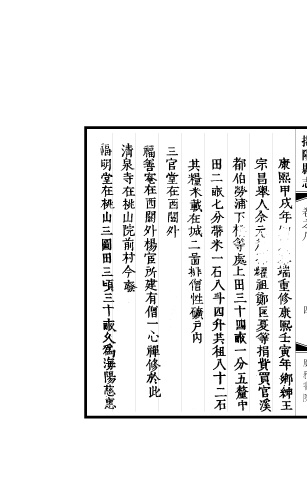 康熙甲戌年端重修康熙壬寅年鄉紳王
宗昌舉人余元耀祖鄭匡夏等捐貲買官溪
都伯勞浦下等處上田三十四畝一分五釐中
田二畝七分帶米一石八斗四升其租八十二石
其糧米載在城二啚排僧性礦户内
三官堂在西關外
福善菴在西關外楊宦所建有僧一心禪修於此
清泉寺在桃山院前村今廢
福明堂在桃山三圖田三頃三十畝久爲海陽慈惠